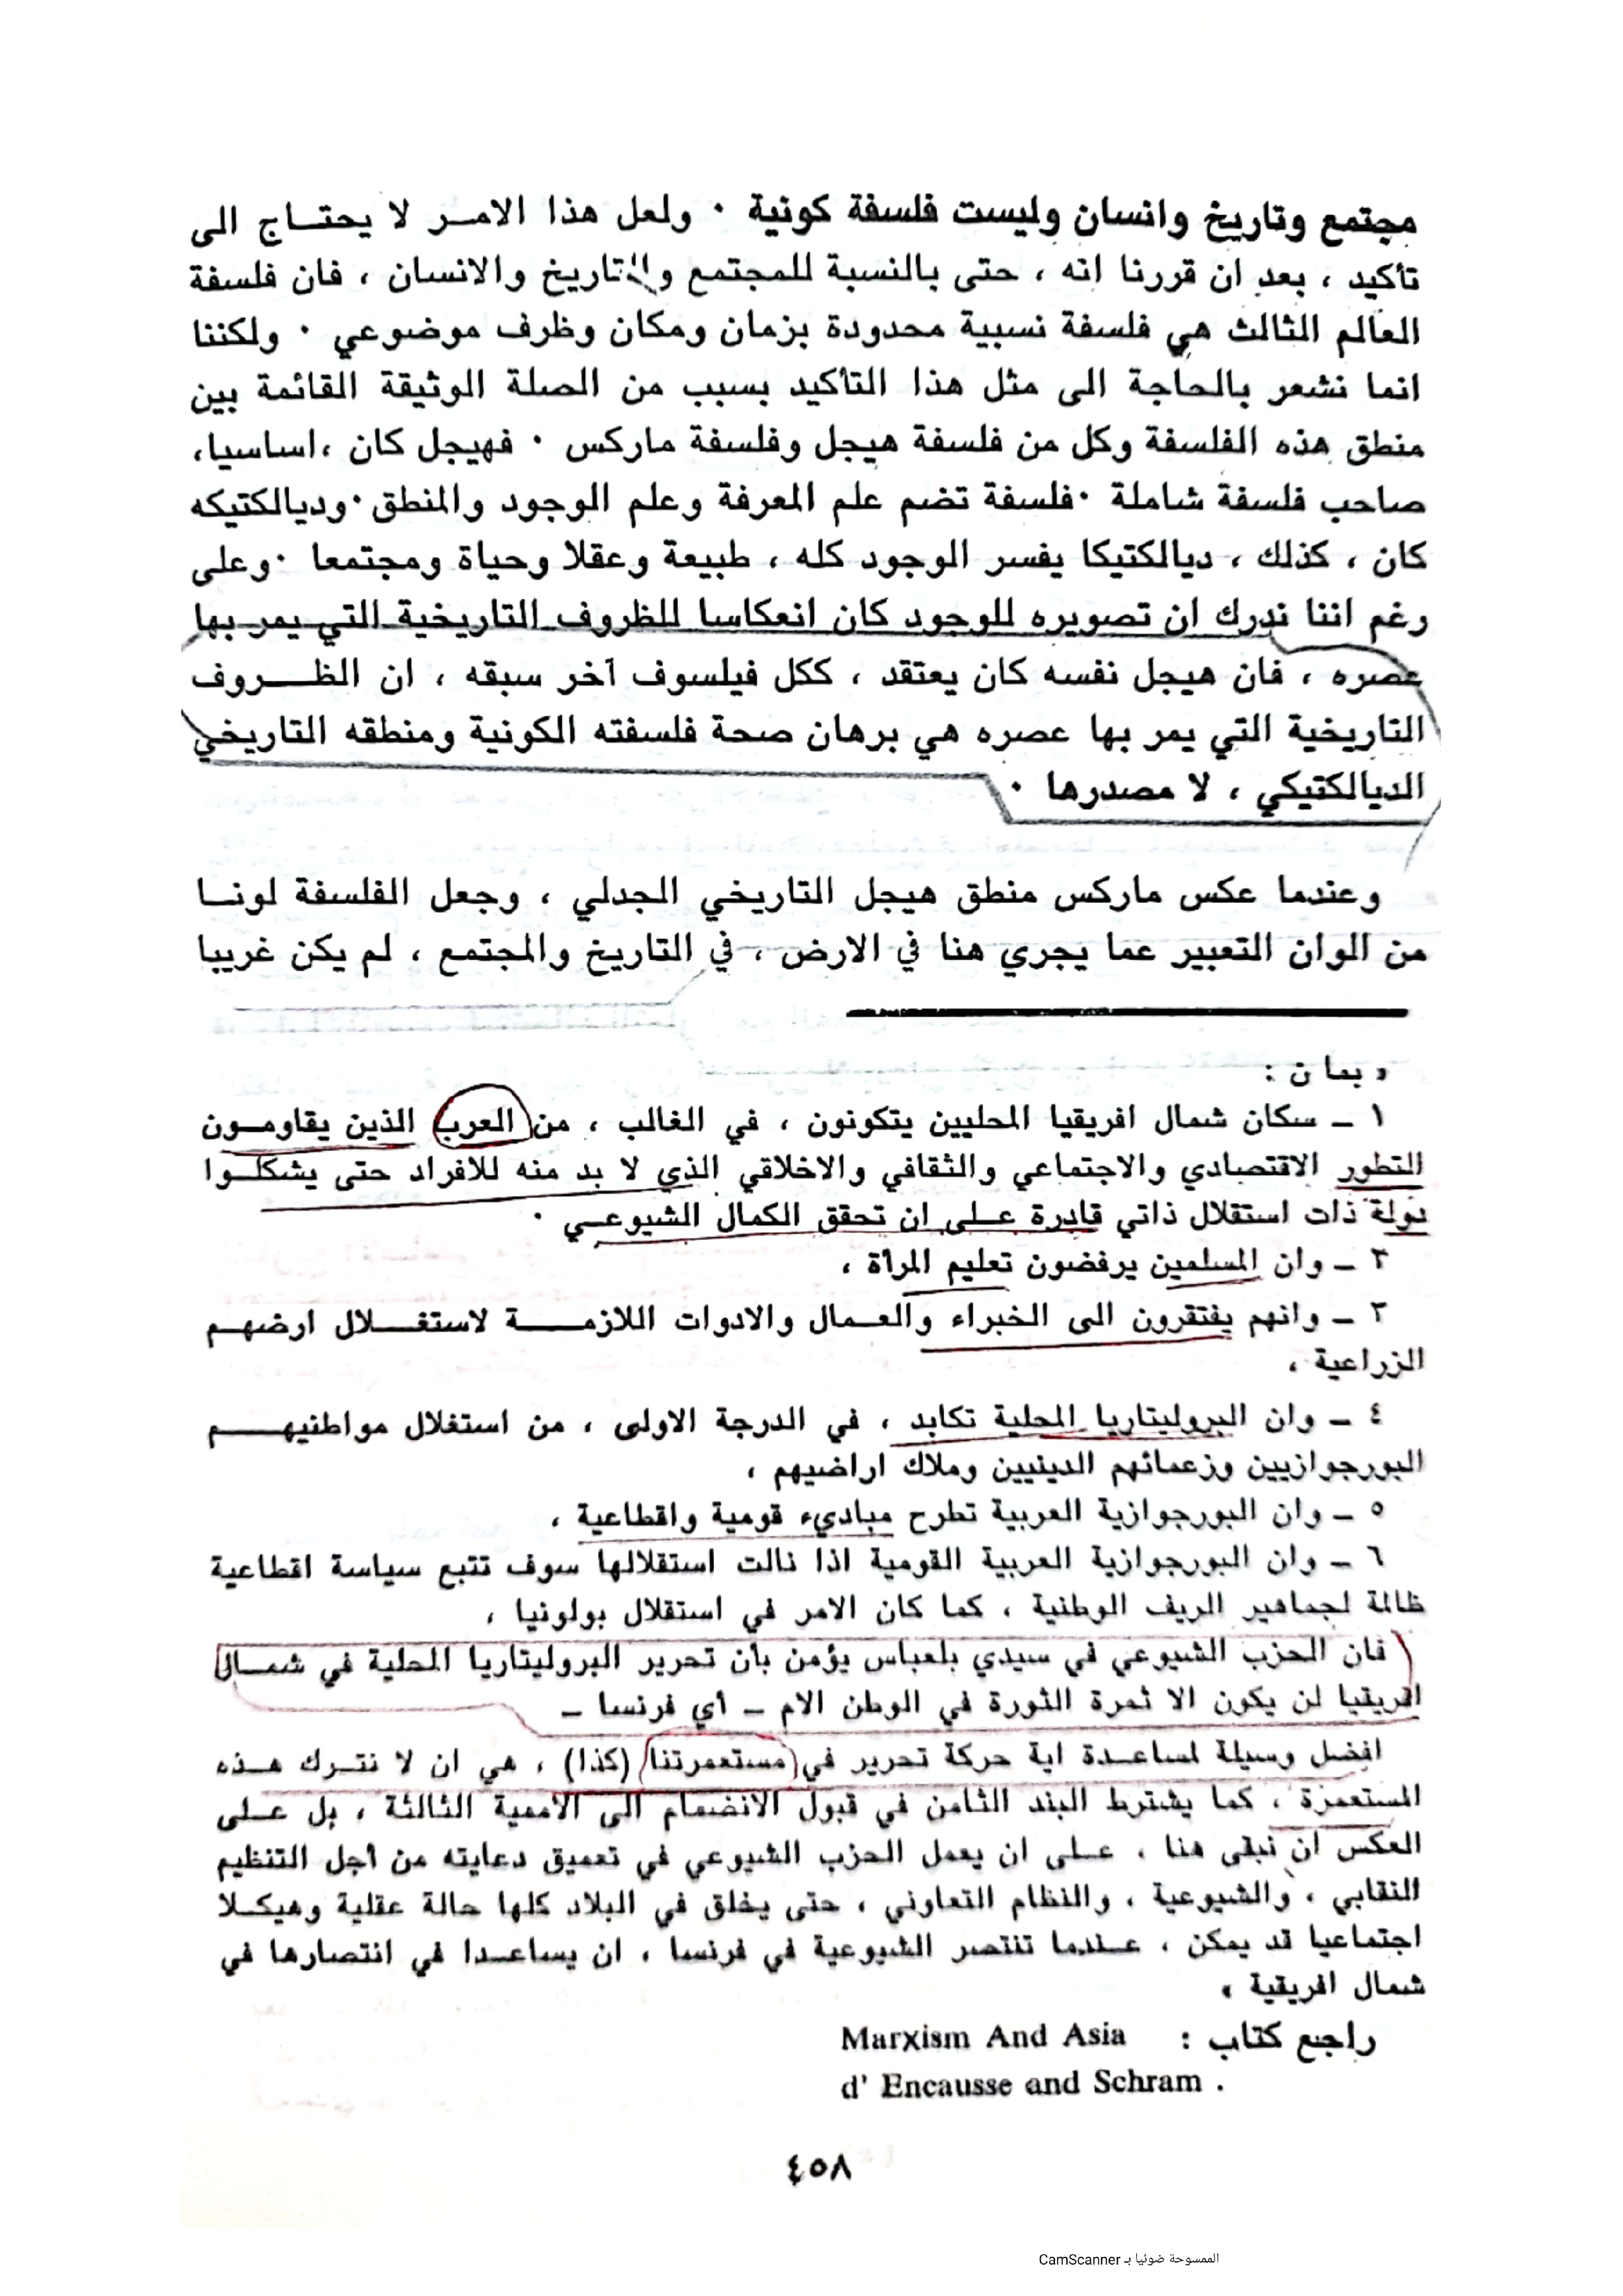 مجتمع وتاريخ وانسان وليست فلسفة كونية ٠ ولعل هذا الامـر لا يحتـاج الى
تأكيد ، بعد ان قررنا انه ، حتى بالنسبة للمجتمع والتاريخ والانسان ، فان فلسفة
العالم الثالث هي فلسفة نسبية محدودة بزمان ومكان وظرف موضوعي ٠ ولكننا
انما نشعر بالحاجة الى مثل هذا التأكيد بسبب من الصلة الوثيقة القائمة بين
منطق هذه الفلسفة وكل من فلسفة هيجل وفلسفة ماركس ٠ فهيجل كان ،اساسيا،
صاحب فلسفة شاملة ٠فلسفة تضم علم المعرفة وعلم الوجود والمنطق ٠وديالكتيكه
كان ، كذلك ، ديالكتيكا يفسر الوجود كله ، طبيعة وعقلا وحياة ومجتمعا ٠وعلى
رغم اننا ندرك ان تصويره للوجود كان انعكاسا للظروف التاريخية التي يمر بها
عصره ، فان هيجل نفسه كان يعتقد ، ككل فيلسوف آخر سبقه ، ان الظـــروف
التاريخية التي يمر بها عصره هي برهان صحة فلسفته الكونية ومنطقه التاريخي
الديالكتيكي ، لا مصدرها ٠
وعندما عكس ماركس منطق هيجل التاريخي الجدلي ، وجعل الفلسفة لونـا
من الوان التعبير عما يجري هنا في الارض ، في التاريخ والمجتمع ، لم يكن غريبا
« بما ن :
١ ـ سكان شمال افريقيا المحليين يتكونون ، في الغالب ، من العرب الذين يقاومـون
التطور الاقتصادي والاجتماعي والثقافي والاخلاقي الذي لا بد منه للافراد حتى يشكلـوا
دولة ذات استقلال ذاتي قادرة علـى ان تحقق الكمال الشيوعـي ٠
٢ ـ وان المسلمين يرفضون تعليم المرأة ،
٣ ـ وانهم يفتقرون الى الخبراء والعـمال والادوات اللازمـــة لاستغـــلال ارضهـم
الزراعية ،
٤ ـ وان البروليتاريا المحلية تكابد ، في الدرجة الاولى ، من استغلال مواطنيهــــم
البورجوازيين وزعمائهم الدينيين وملاك اراضيهم ،
٥ ـ وان البورجوازية العربية تطرح مباديء قومية واقطاعية ،
٦ ـ وان البورجوازية العربية القومية اذا نالت استقلالها سوف تتبع سياسة اقطاعية
ظالمة لجماهير الريف الوطنية ، كما كان الامر في استقلال بولونيا ،
فان الحزب الشيوعي في سيدي بلعباس يؤمن بأن تحرير البروليتاريا المحلية في شمـال
افريقيا لن يكون الا ثمرة الثورة في الوطن الام ـ أي فرنسا ـ
افضل وسيلة لمساعـدة اية حركة تحرير في مستعمرتنا (كذا) ، هي ان لا نتـرك هـذه
المستعمرة ، كما يشترط البند الثامن في قبول الانضمام الى الأممية الثالثة ، بل علـى
العكس ان نبقى هنا ، علـى ان يعمل الحزب الشيوعي في تعميق دعايته من أجل التنظيم
النقابي ، والشيوعية ، والنظام التعاوني ، حتى يخلق في البلاد كلها حالة عقلية وهيكـلا
اجتماعيا قد يمكن ، عـندما تنتصر الشيوعية في فرنسا ، ان يساعـدا في انتصارها في
شمال افريقية »
راجع كتاب : Marxism And Asia
d' Encausse and Schram .
٤٥٨
الممسوحة ضوئيا بـ CamScanner